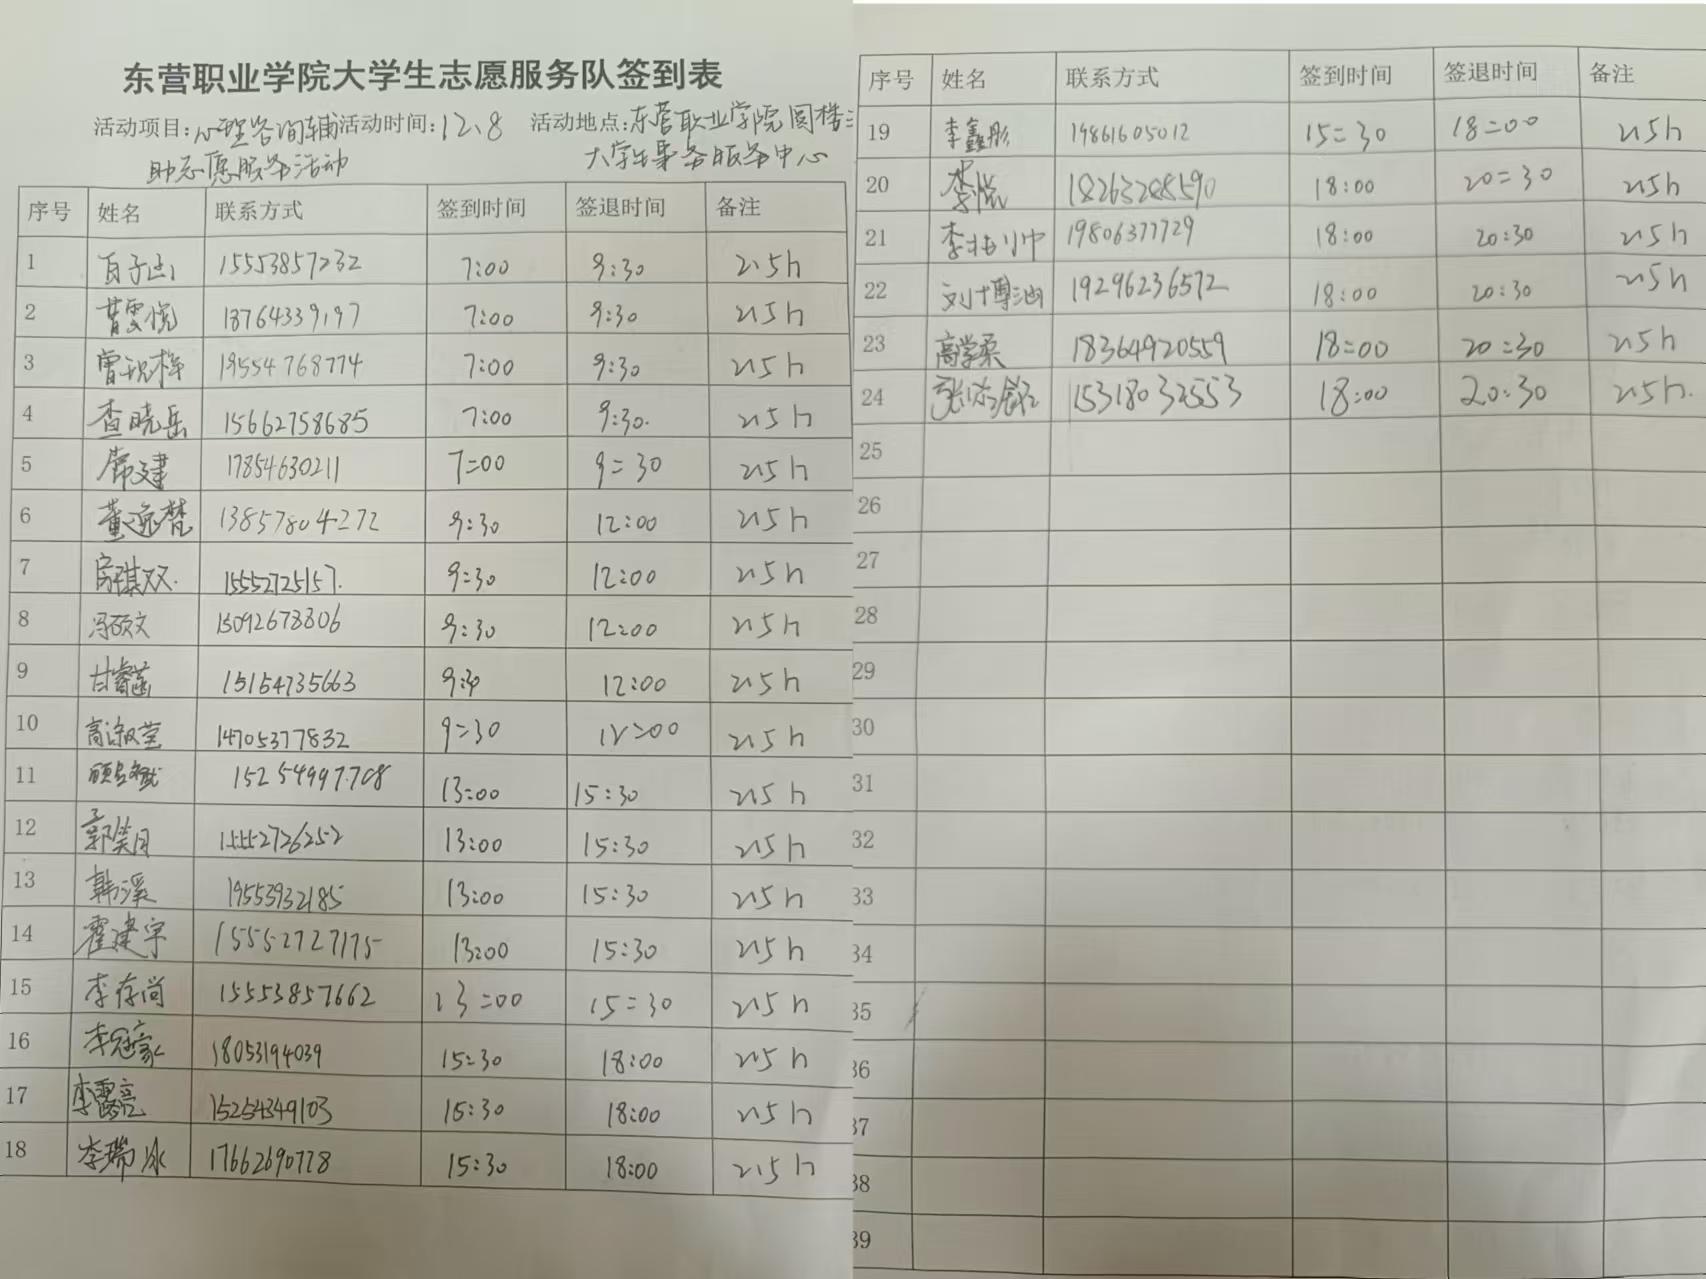 东营职业学院大学生志愿服务队签到表
活动项目:心理咨询辅 活动时间:12.8 活动地点:东营职业学院圆楼
助志愿服务活动 大学生事务服务中心
序号 姓名 联系方式 签到时间 签退时间 备注
1 15553857232 7:00 9:30 2.5h
2 18764339197 7:00 9:30 2.5h
3 19554768774 7:00 9:30 2.5h
4 查晓岳 15662758685 7:00 9:30 2.5h
5 常建 17854630211 7:00 9:30 2.5h
6 董逸梵 13857804272 9:30 12:00 2.5h
7 房琪双 15552725157 9:30 12:00 2.5h
8 冯硕文 15092678806 9:30 12:00 2.5h
9 甘睿菡 15154735663 9:30 12:00 2.5h
10 高淑莹 14705377832 9:30 12:00 2.5h
11 15254997708 13:00 15:30 2.5h
12 郭笑月 15552726252 13:00 15:30 2.5h
13 韩溪 19553932185 13:00 15:30 2.5h
14 霍建宇 15552727175 13:00 15:30 2.5h
15 李存尚 15553857662 13:00 15:30 2.5h
16 李冠豪 18053194039 15:30 18:00 2.5h
17 李露亮 15254349103 15:30 18:00 2.5h
18 李瑞冰 17662690778 15:30 18:00 2.5h
序号 姓名 联系方式 签到时间 签退时间 备注
19 李鑫彤 19861605012 15:30 18:00 2.5h
20 李悦 18263288590 18:00 20:30 2.5h
21 19806377729 18:00 20:30 2.5h
22 刘博涵 19296236572 18:00 20:30 2.5h
23 高学桑 18364920559 18:00 20:30 2.5h
24 15318032553 18:00 20:30 2.5h.
25
26
27
28
29
30
31
32
33
34
35
36
37
38
39